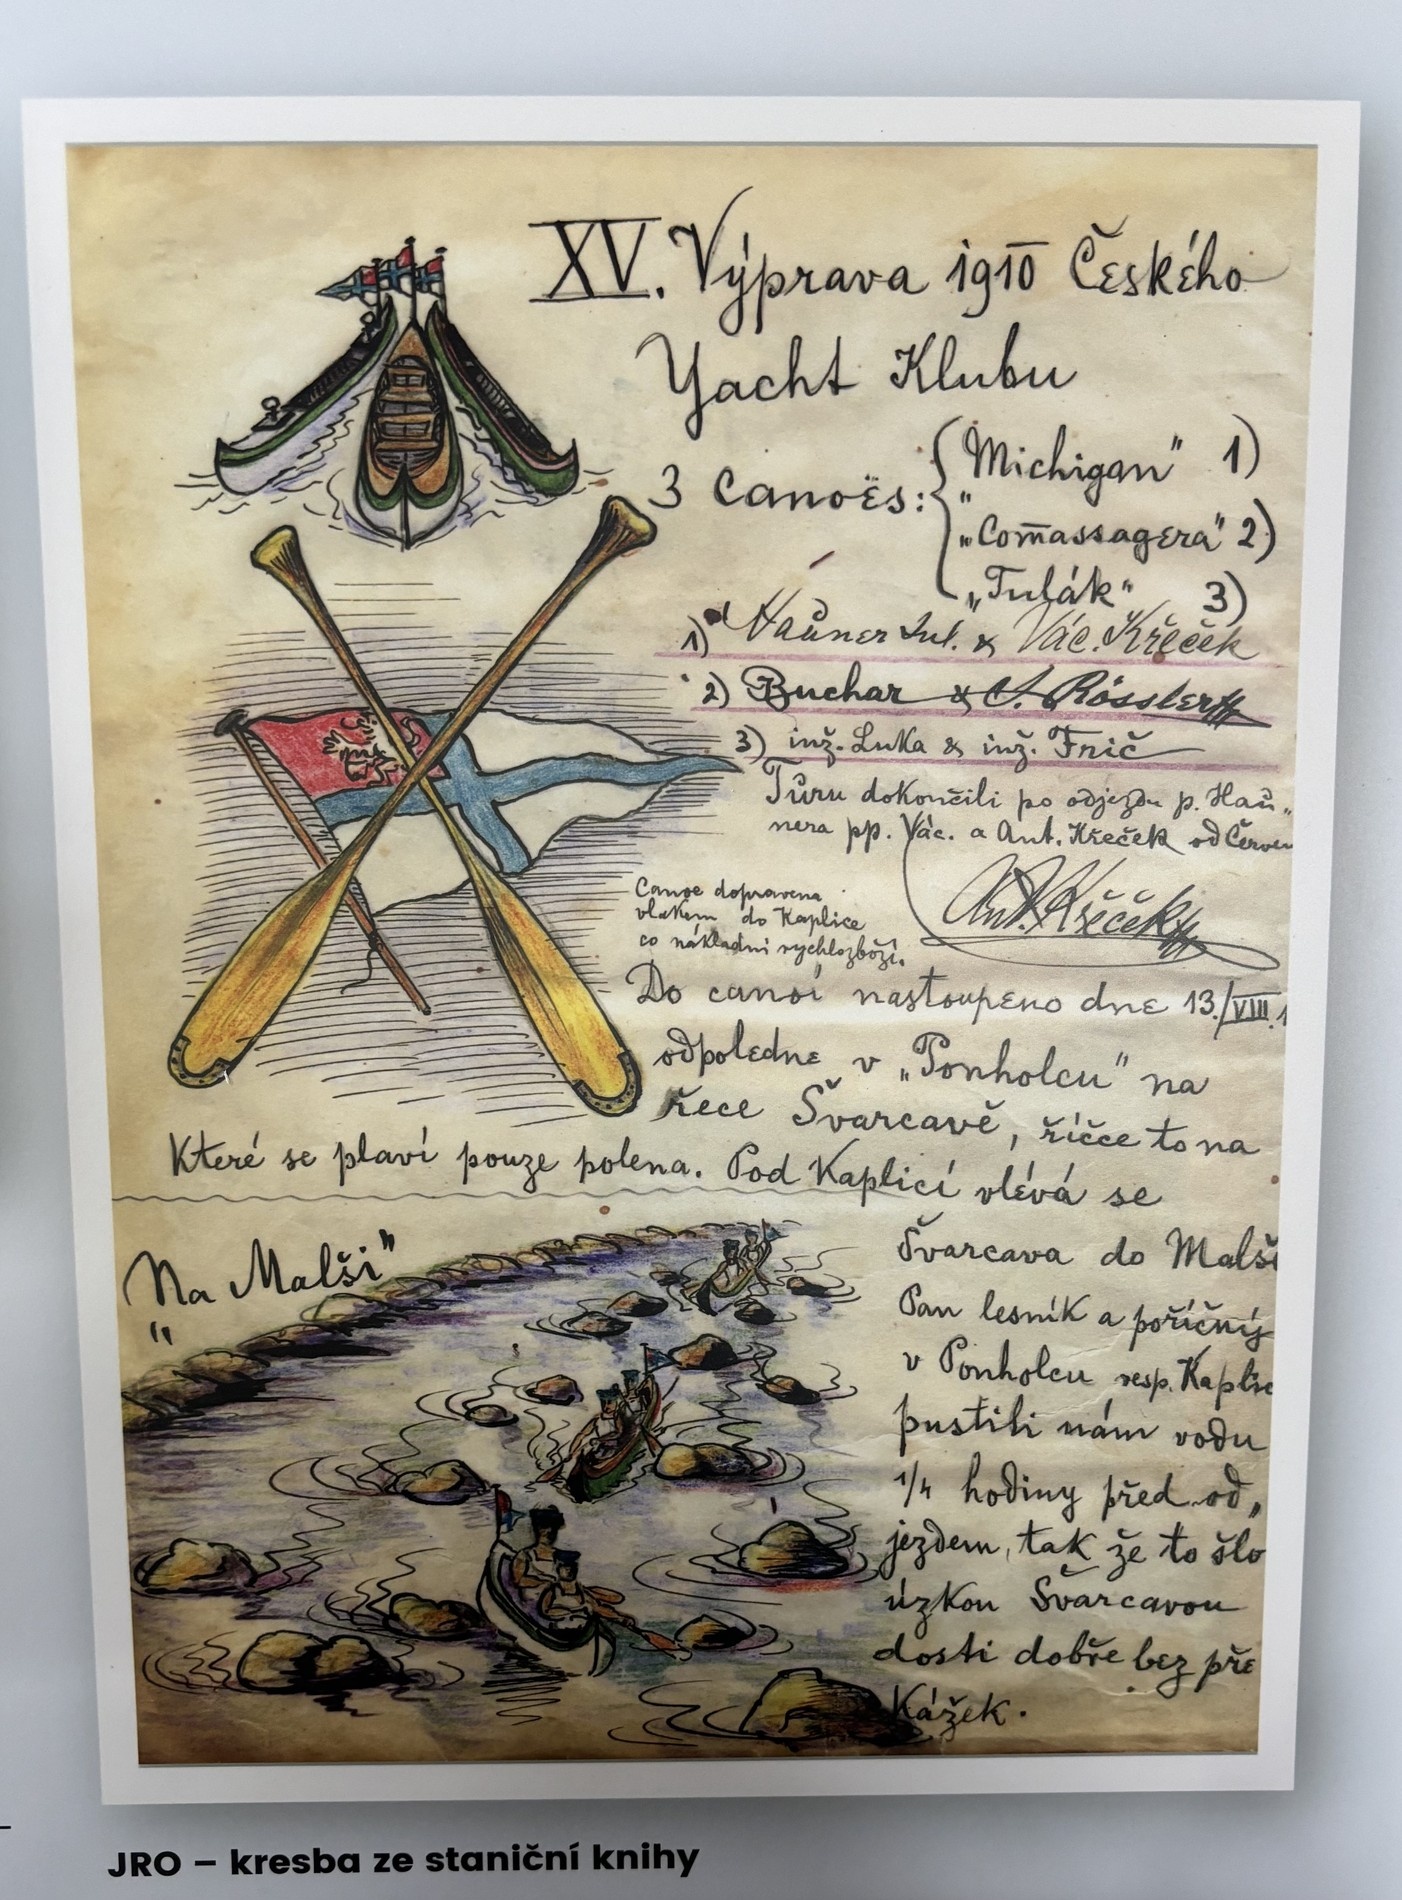 XV. Výprava 1910 Českého
Yacht Klubu
3 canoës:
„Michigan" 1)
„Com̅assagera" 2)
„Tulák" 3)
1) Haůner Jul. & Vác. Křeček
2) Buchar & J. Rössler
3) inž. Luka & inž. Frič
Tůru dokončili po odjezdu p. Haů„
nera pp. Vác. a Ant. Křeček od Červen
Ant. Křeček
Canoe dopravena
vlakem do Kaplice
co nákladní rychlozboží.
Do canoí nastoupeno dne 13./VIII.1
odpoledne v „Ponholcu" na
řece Švarcavě, říčce to na
Které se plaví pouze polena. Pod Kaplicí vlévá se
„Na Malši"
Švarcava do Malši
Pan lesník a poříčný
v Ponholcu resp. Kaplic
pustili nám vodu
1/4 hodiny před od„
jezdem, tak že to šlo
úzkou Švarcavou
dosti dobře bez pře
Kážek.
JRO – kresba ze staniční knihy